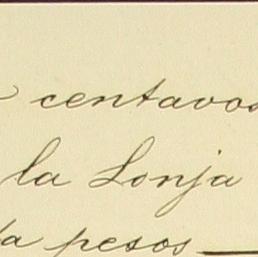 centavos
la Lonja
pesos